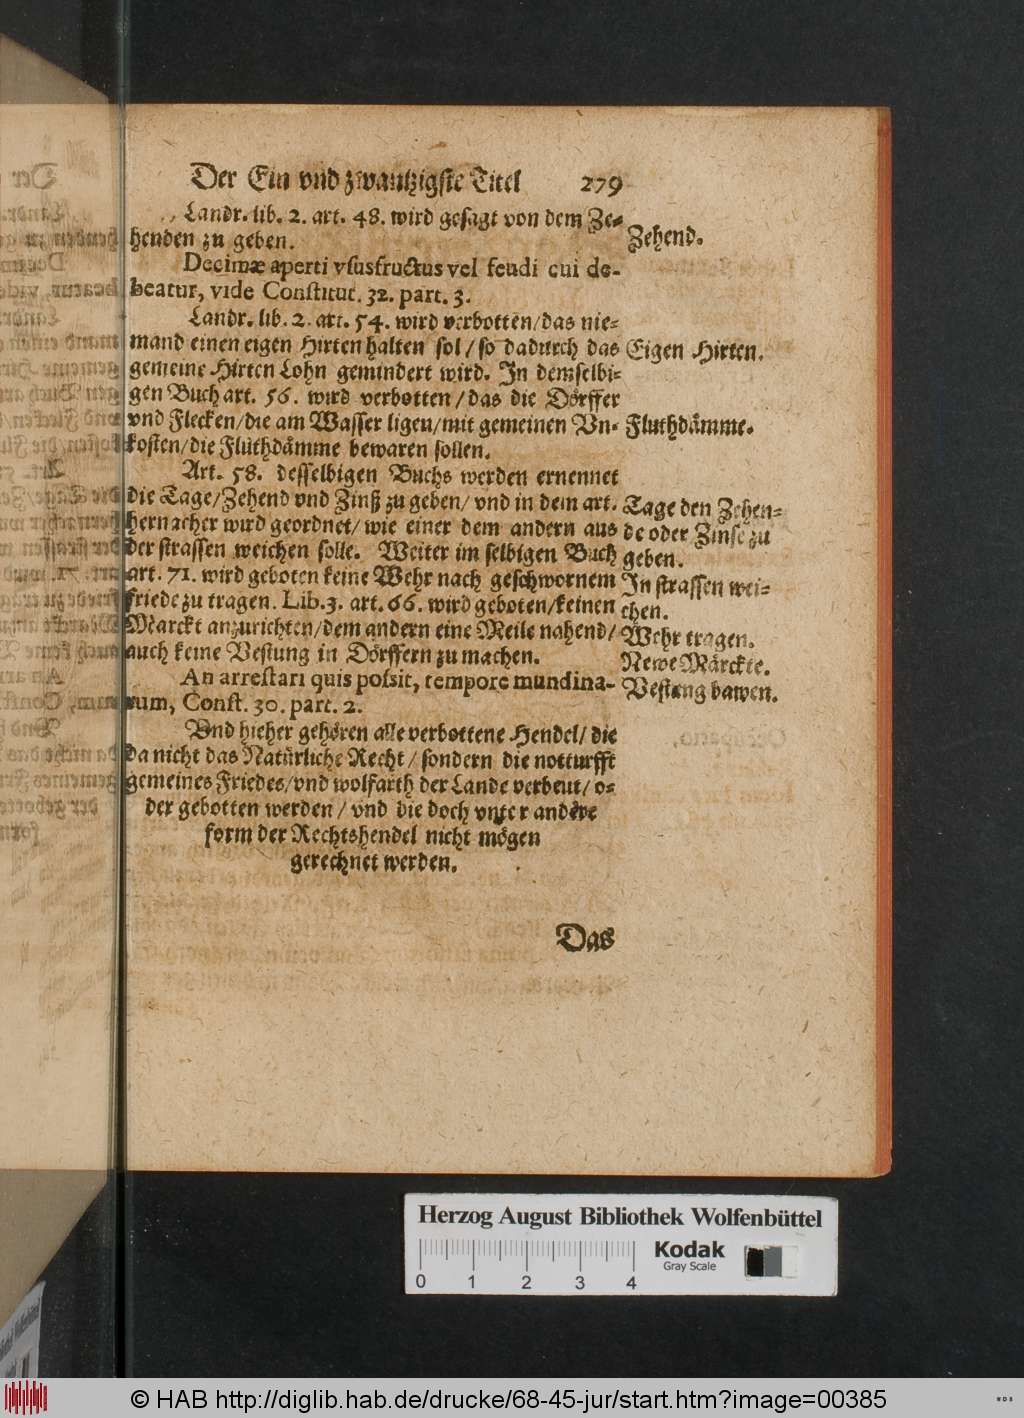 Der Ein vnd zwantzigste Titel 279
Landr. lib. 2. art. 48. wird gesagt von dem Ze-
henden zu geben.
Zehend.
Decimæ aperti vsusfructus vel feudi cui de-
beatur, vide Constitut. 32. part. 3.
Landr. lib. 2. art. 54. wird verbotten/das nie-
mand einen eigen Hirten halten sol/so dadurch das
Eigen Hirten.
gemeine Hirten Lohn gemindert wird. In demselbi-
gen Buch art. 56. wird verbotten/das die Dörffer
vnd Flecken/die am Wasser ligen/mit gemeinen Vn-
Fluthdämme.
kosten/die Fluthdämme bewaren sollen.
Art. 58. desselbigen Buchs werden ernennet
die Tage/Zehend vnd Zinß zu geben/vnd in dem art.
Tage den Zehen-
hernacher wird geordnet/wie einer dem andern aus
de oder Zinse zu
der strassen weichen solle. Weiter im selbigen Buch
geben.
art. 71. wird geboten keine Wehr nach geschwornem
In strassen wei-
friede zu tragen. Lib. 3. art. 66. wird geboten/keinen
chen.
Marckt anzurichten/dem andern eine Meile nahend/
Wehr tragen.
auch keine Vestung in Dörffern zu machen.
Newe Märckte.
An arrestari quis possit, tempore mundina-
Vestung bawen.
rum, Const. 30. part. 2.
Vnd hieher gehören alle verbottene Hendel/die
da nicht das Natürliche Recht/sondern die notturfft
gemeines Friedes/vnd wolfarth der Lande verbeut/o-
der gebotten werden/vnd die doch vnter andere
form der Rechtshendel nicht mögen
gerechnet werden.
Das
Herzog August Bibliothek Wolfenbüttel
Kodak
Gray Scale
0 1 2 3 4
© HAB http://diglib.hab.de/drucke/68-45-jur/start.htm?image=00385